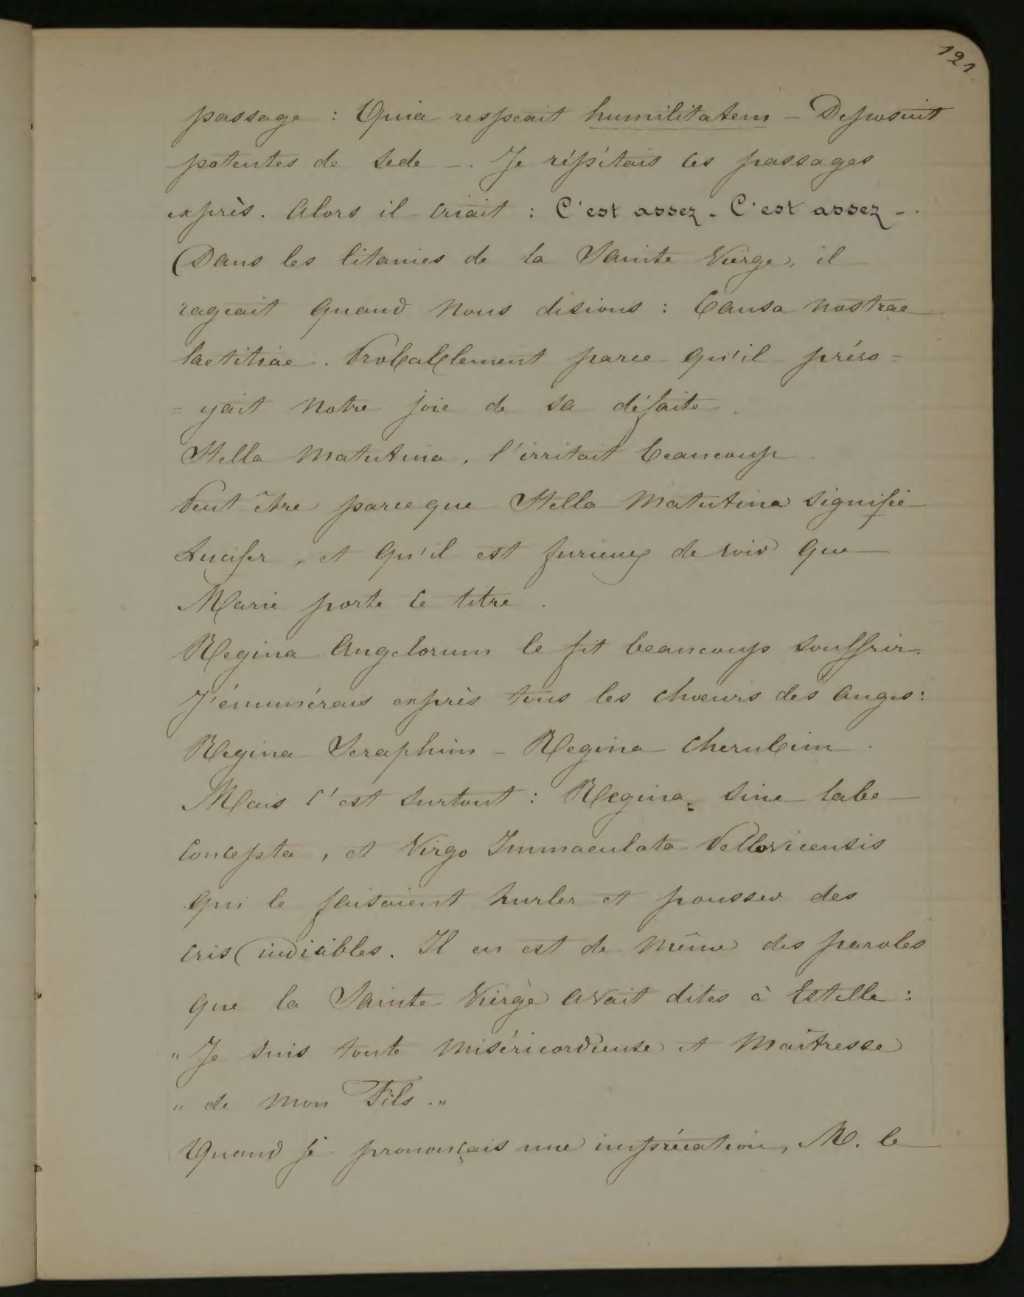 121
passage : Quia respexit humilitatem – Deposuit
potentes de sede –. Je répétais ces passages
exprès. Alors il criait : C'est assez – C'est assez –.
(Dans les litanies de la Sainte Vierge, il
rageait quand nous disions : Causa nostrae
laetitiae. Probablement parce qu'il prévo=
=yait notre joie de sa défaite.
Stella Matutina, l'irritait beaucoup.
Peut être parceque Stella Matutina signifie
Lucifer, et qu'il est furieux de voir que
Marie porte ce titre.
Regina Angelorum le fit beaucoup souffrir.
J'énumérais exprès tous les chœurs des anges :
Regina Seraphim – Regina Cherubim.
Mais c'est surtout : Regina sine labe
concepta, et Virgo Immaculata Pellevicensis
qui le faisaient hurler et pousser des
cris (indiables. Il en est de même des paroles
que la Sainte Vierge avait dites à Estelle :
" Je suis toute miséricordieuse et Maîtresse
" de mon Fils. "
Quand je prononçais une imprécation, M. le